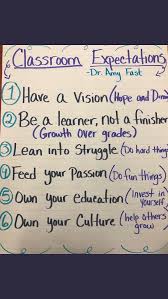 Classroom Expectations
-Dr. Amy Fast
① Have a Vision (Hope and
② Be a learner, not a finisher
(Growth Over grades)
③ Lean into Struggle (Do hard things)
④ Feed your Passion (Do fun things)
⑤ Own your education (Invest in Yourself)
⑥ Own your Culture (help others grow)